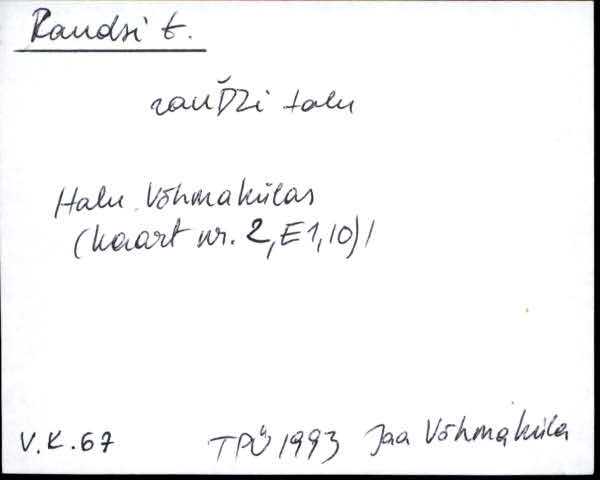 Raudsi t.
rauD̆zi talu
Talu Võhmakülas
(kaart nr. 2, E1, 10) /
V.K. 67
TPÜ 1993 Jaa Võhmaküla